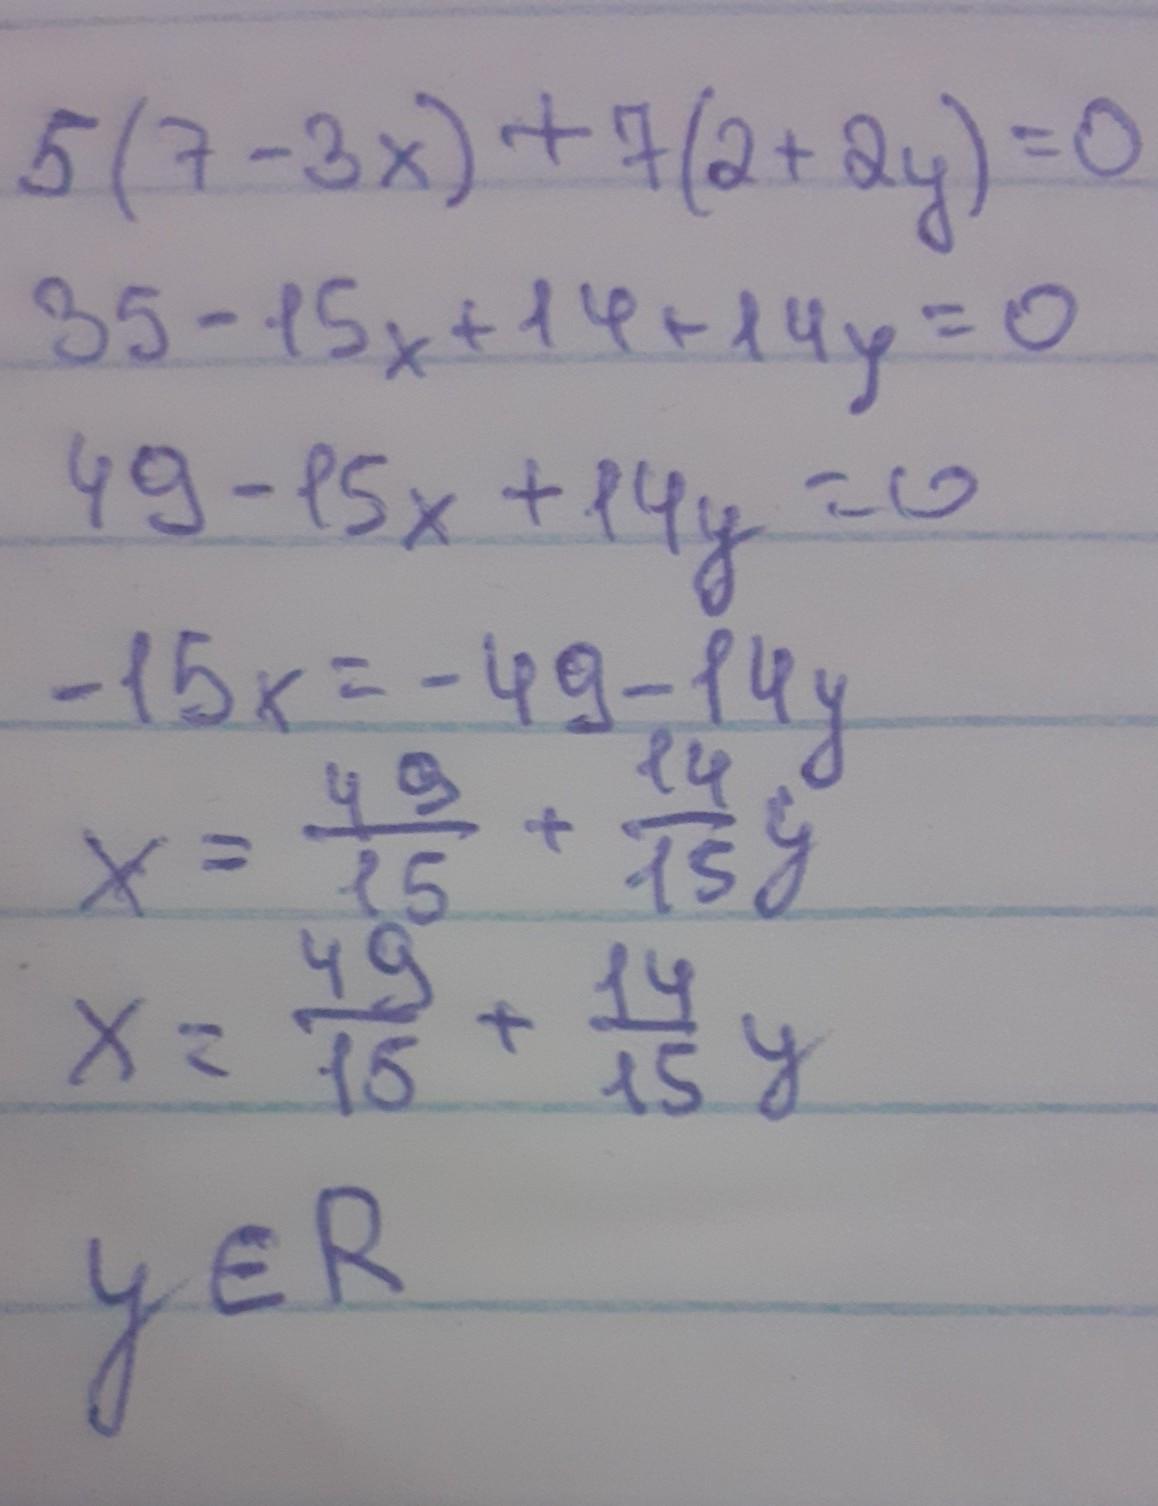 5(7-3x)+7(2+2y)=0
35-15x+14+14y=0
49-15x+14y=0
-15x=-49-14y
x=49/15+14/15y
x=49/15+14/15y
y∈R